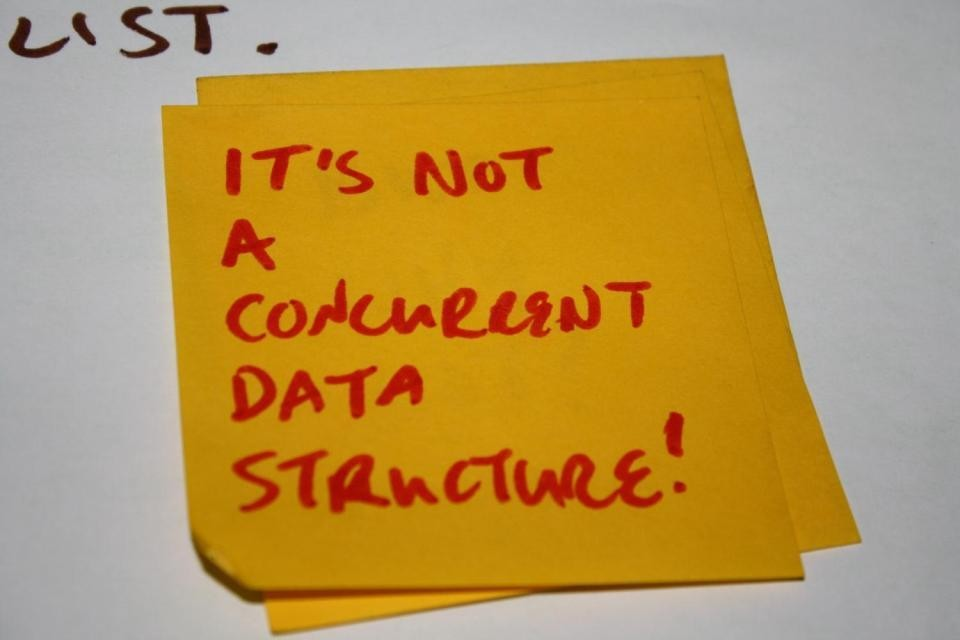 LIST.
IT'S NOT
A
CONCURRENT
DATA
STRUCTURE!